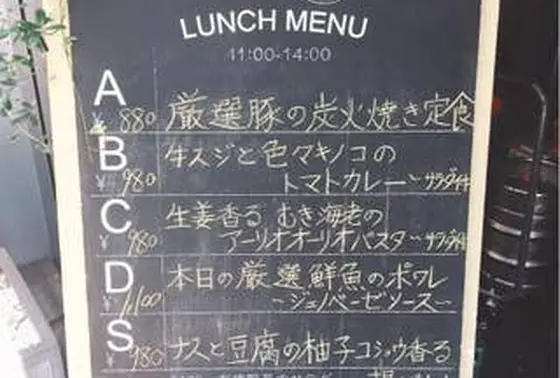 LUNCH MENU
11:00-14:00
A
¥880 厳選豚の炭火焼き定食
B
¥980 牛スジと色々キノコの
トマトカレー～サラダ付
C
¥980 生姜香る むき海老の
アーリオオーリオパスタ～サラダ付
D
¥1,100 本日の厳選鮮魚のポワレ
～ジェノベーゼソース～
S
¥980 ナスと豆腐の柚子コショウ香る